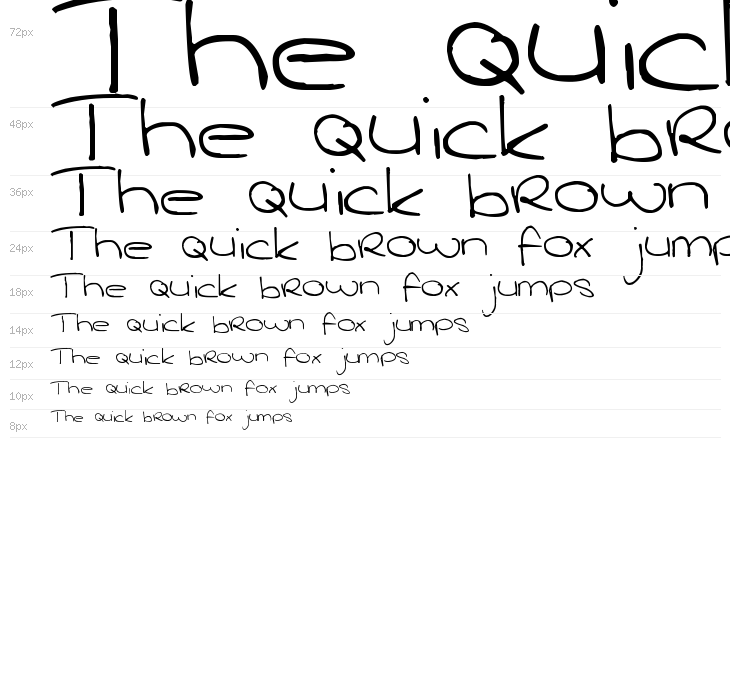 72px The quick
48px The quick br
36px The quick brown
24px The quick brown fox jump
18px The quick brown fox jumps
14px The quick brown fox jumps
12px The quick brown fox jumps
10px The quick brown fox jumps
8px The quick brown fox jumps